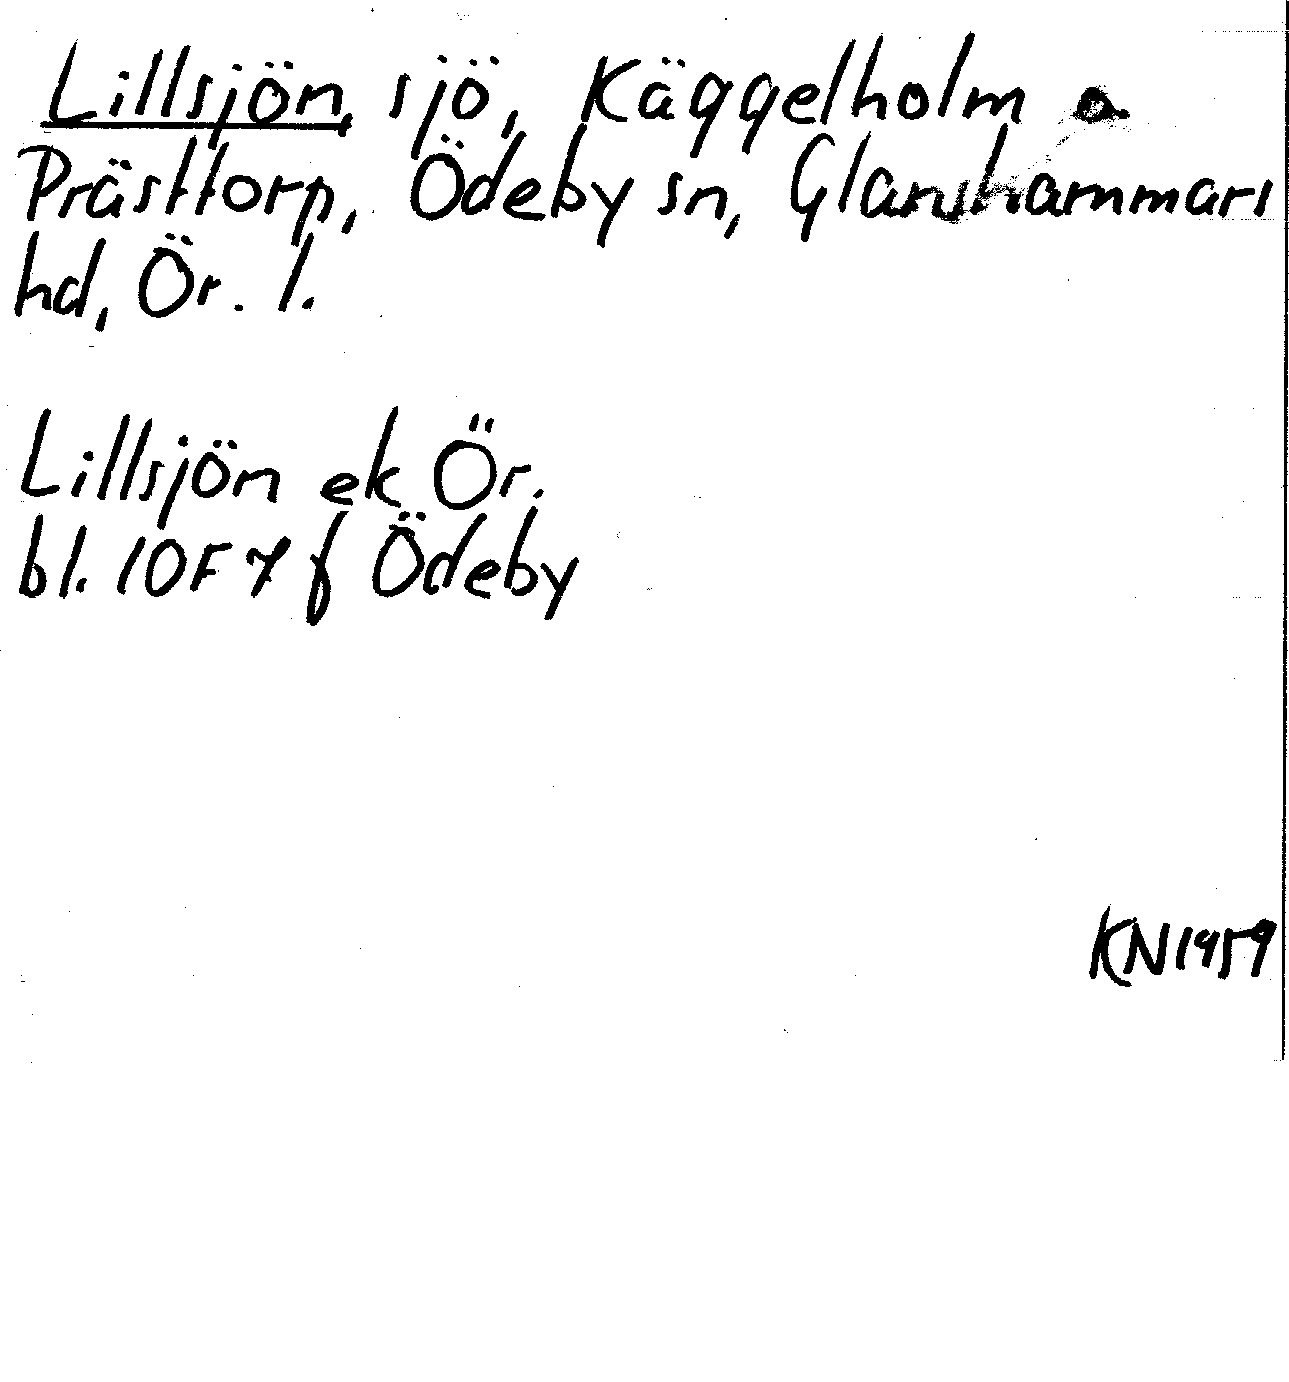 Lillsjön, sjö, Käggelholm a
Prästtorp, Ödeby sn, Glanshammars
hd, Ör. l.
Lillsjön ek Ör.
bl. 10F 7 f Ödeby
KN 1959